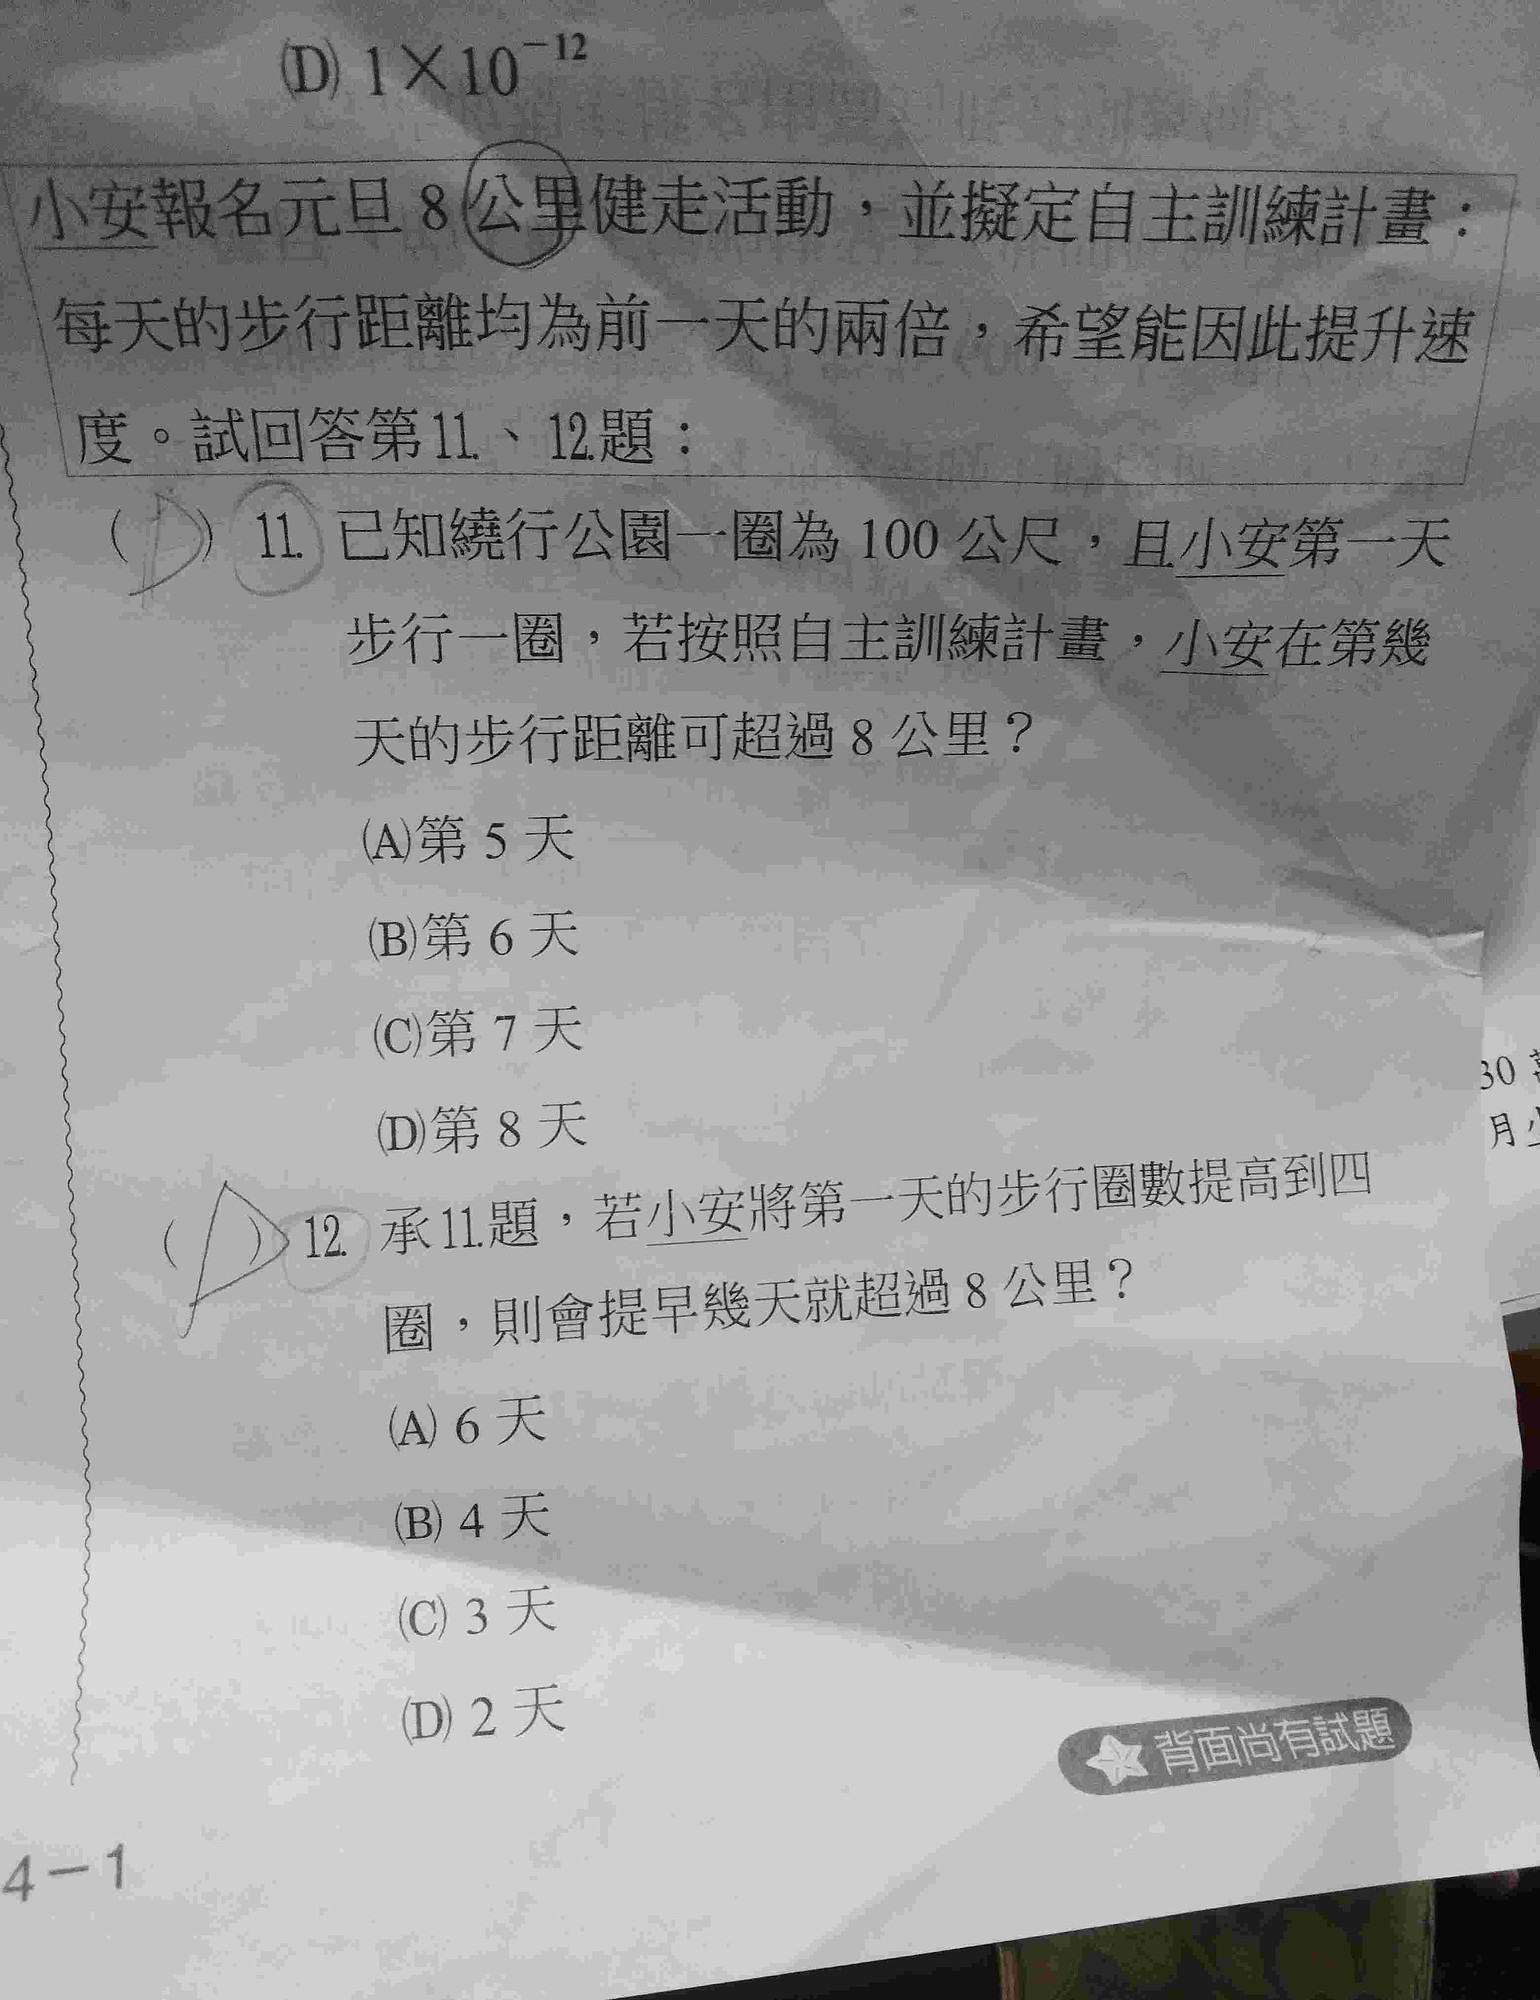 (D) 1×10⁻¹²
小安報名元旦 8 公里健走活動，並擬定自主訓練計畫：
每天的步行距離均為前一天的兩倍，希望能因此提升速
度。試回答第11.、12.題：
(D) 11. 已知繞行公園一圈為 100 公尺，且小安第一天
步行一圈，若按照自主訓練計畫，小安在第幾
天的步行距離可超過 8 公里？
(A)第 5 天
(B)第 6 天
(C)第 7 天
(D)第 8 天
(D) 12. 承11.題，若小安將第一天的步行圈數提高到四
圈，則會提早幾天就超過 8 公里？
(A) 6 天
(B) 4 天
(C) 3 天
(D) 2 天
背面尚有試題
4－1
30
月